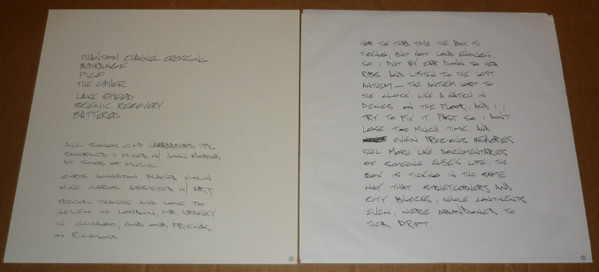 PHANTOM CHANNEL CROSSING
MIDRANGE
FILE
THE
LAKE SPEED
SCENIC RECOVERY
BATTERED
ALL SONGS C+P LABRADFORD 1996
RECORDED + MIXED W/ JOHN MORAND
AT SOUND OF MUSIC
CHRIS JOHNSTON PLAYED VIOLIN
MIKE ASSISTED W/ ART
SPECIAL THANKS AND LOVE TO
HELEN IN LONDON, MR. VERNEY
IN CHICAGO, AND OUR FRIENDS
IN RICHMOND
THE TIME THE BOX IS
BUT NOT LOUD ENOUGH.
SO I PUT MY EAR DOWN TO HER
RIBS AND LISTEN TO THE LOST
ANTHEM — THE ANTHEM LOST TO
THE CLOCK. LIKE A WATCH IN
PIECES ON THE FLOOR, AND I
TRY TO FIX IT FAST SO I DON'T
LOSE TOO MUCH TIME. AND
EVEN PRECIOUS MEMORIES
FEEL MORE LIKE DOCUMENTARIES
OF SOMEONE ELSE'S LIFE THE
BOX IS TICKING IN THE SAME
WAY THAT STREETCORNERS AND
CITY BLOCKS, WHOLE CONTINENTS
EVEN, WERE ABANDONED TO
DRIFT